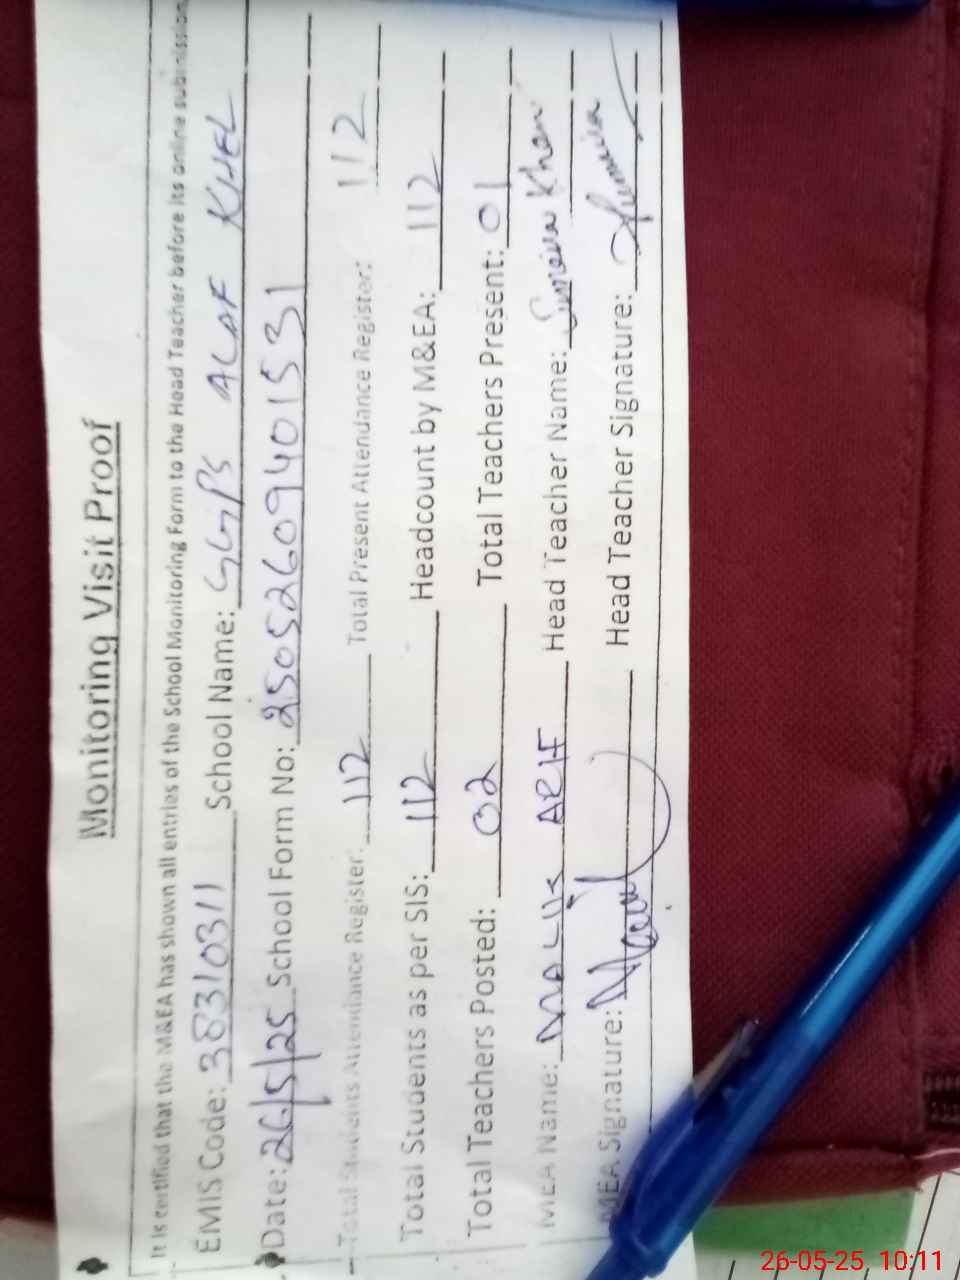 Monitoring Visit Proof
It is certified that the M&EA has shown all entries of the School Monitoring Form to the Head Teacher before its online submission.
EMIS Code: 38310311 School Name: GGPS ALAF KHEL
Date: 26/5/25 School Form No: 250526094015331
Total Students Attendance Register: 112 Total Present Attendance Register: 112
Total Students as per SIS: 112 Headcount by M&EA: 112
Total Teachers Posted: 02 Total Teachers Present: 01
MEA Name: MALIK ARIF Head Teacher Name: Sumaira Khan
MEA Signature: Head Teacher Signature: Sumaira
26-05-25, 10:11